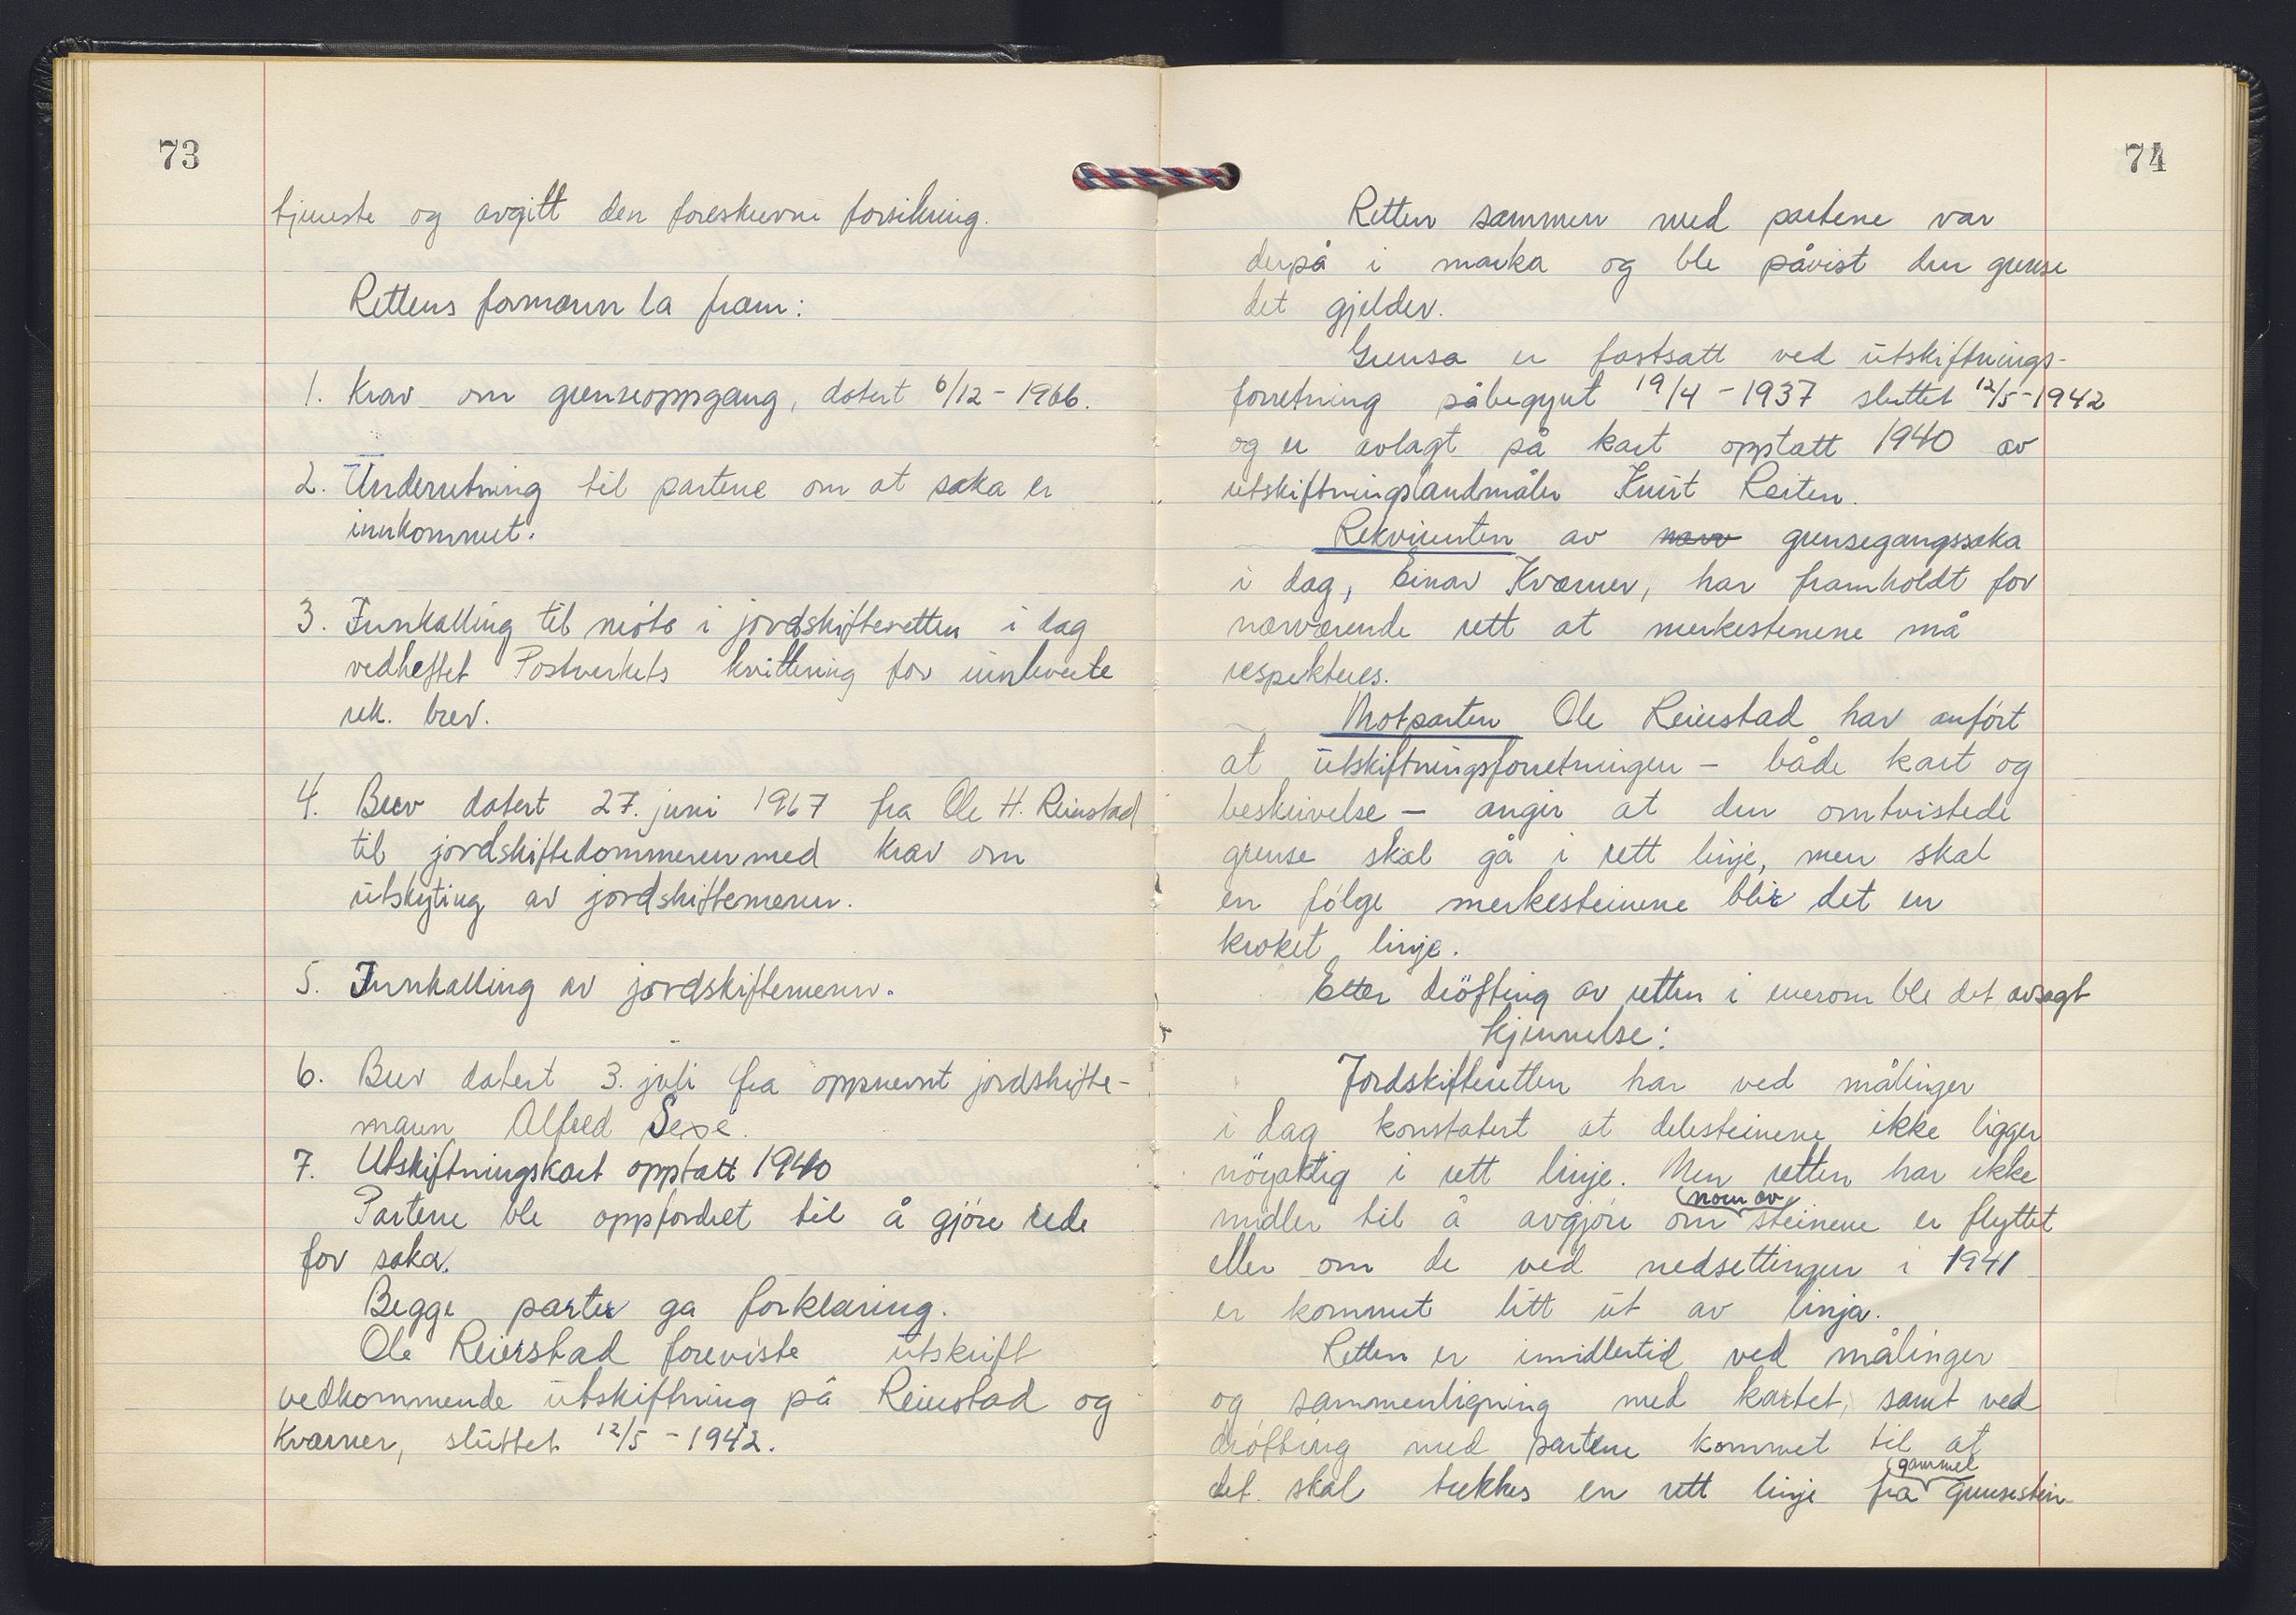 73
tjeneste og avgitt den foreskrevne forsikring.
Rettens formann la fram:
1. Krav om grenseoppgang, datert 6/12 - 1966.
2. Underretning til partene om at saka er
innkommet.
3. Innkalling til møte i jordskifteretten i dag
vedheftet Postverkets kvittering for innleverte
rek. brev.
4. Brev datert 27. juni 1967 fra Ole H. Reierstad
til jordskiftedommeren med krav om
utskyting av jordskiftemenn.
5. Innkalling av jordskiftemenn.
6. Brev datert 3. juli fra oppnevnt jordskifte-
mann Alfred Sexe.
7. Utskiftningskart opptatt 1940
Partene ble oppfordret til å gjöre rede
for saka.
Begge parter ga forklaring.
Ole Reierstad foreviste utskrift
vedkommende utskiftning på Reierstad og
Kværner, sluttet 12/5 - 1942.
74
Retten sammen med partene var
derpå i marka og ble påvist den grense
det gjelder.
Grensa er fastsatt ved utskiftnings-
forretning påbegynt 19/4 - 1937 sluttet 12/5 - 1942
og er avlagt på kart opptatt 1940 av
utskiftningslandmåler Knut Reiten.
Rekvirenten av grensegangssaka
i dag, Einar Kværner, har framholdt for
nærværende rett at merkestenene må
respekteres.
Motparten Ole Reierstad har anfört
at utskiftningsforretningen - både kart og
beskrivelse - angir at den omtvistede
grense skal gå i rett linje, men skal
en fölge merkesteinene blir det en
kroket linje.
Etter dröfting av retten i enerom ble det avsagt
kjennelse:
Jordskifteretten har ved målinger
i dag konstatert at delesteinene ikke ligger
nöyaktig i rett linje. Men retten har ikke
midler til å avgjöre om noen av steinene er flyttet
eller om de ved nedsettingen i 1941
er kommet litt ut av linja.
Retten er imidlertid ved målinger
og sammenligning med kartet, samt ved
dröfting med partene kommet til at
det skal trekkes en rett linje fra gammel grensestein